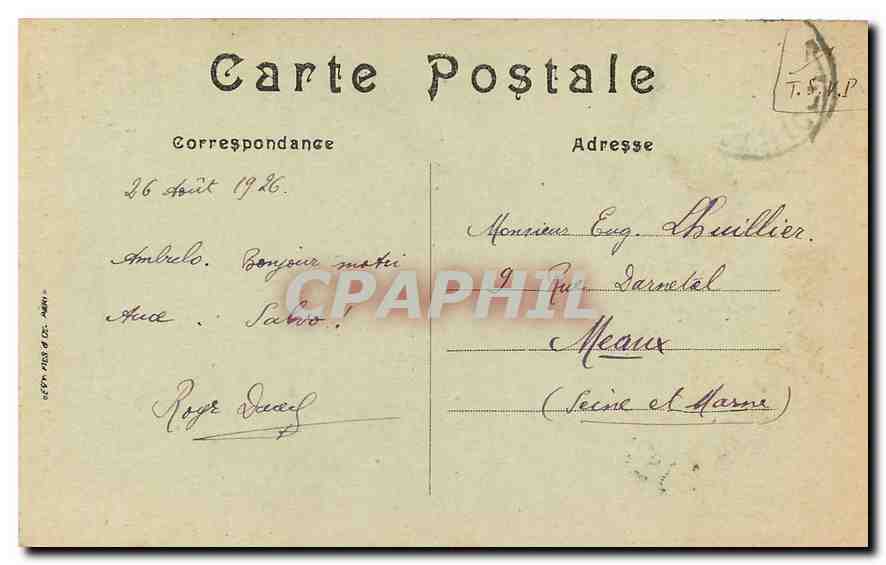 Carte Postale
T. S. V. P
Correspondance
Adresse
26 Août 1926.
Ambrelo. Bonjour
. Salvo !
Monsieur Eug. Lhuillier.
9 Rue Darnetal
Meaux
(Seine et Marne)
CPAPHIL